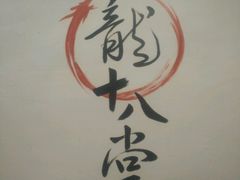 龍十八掌